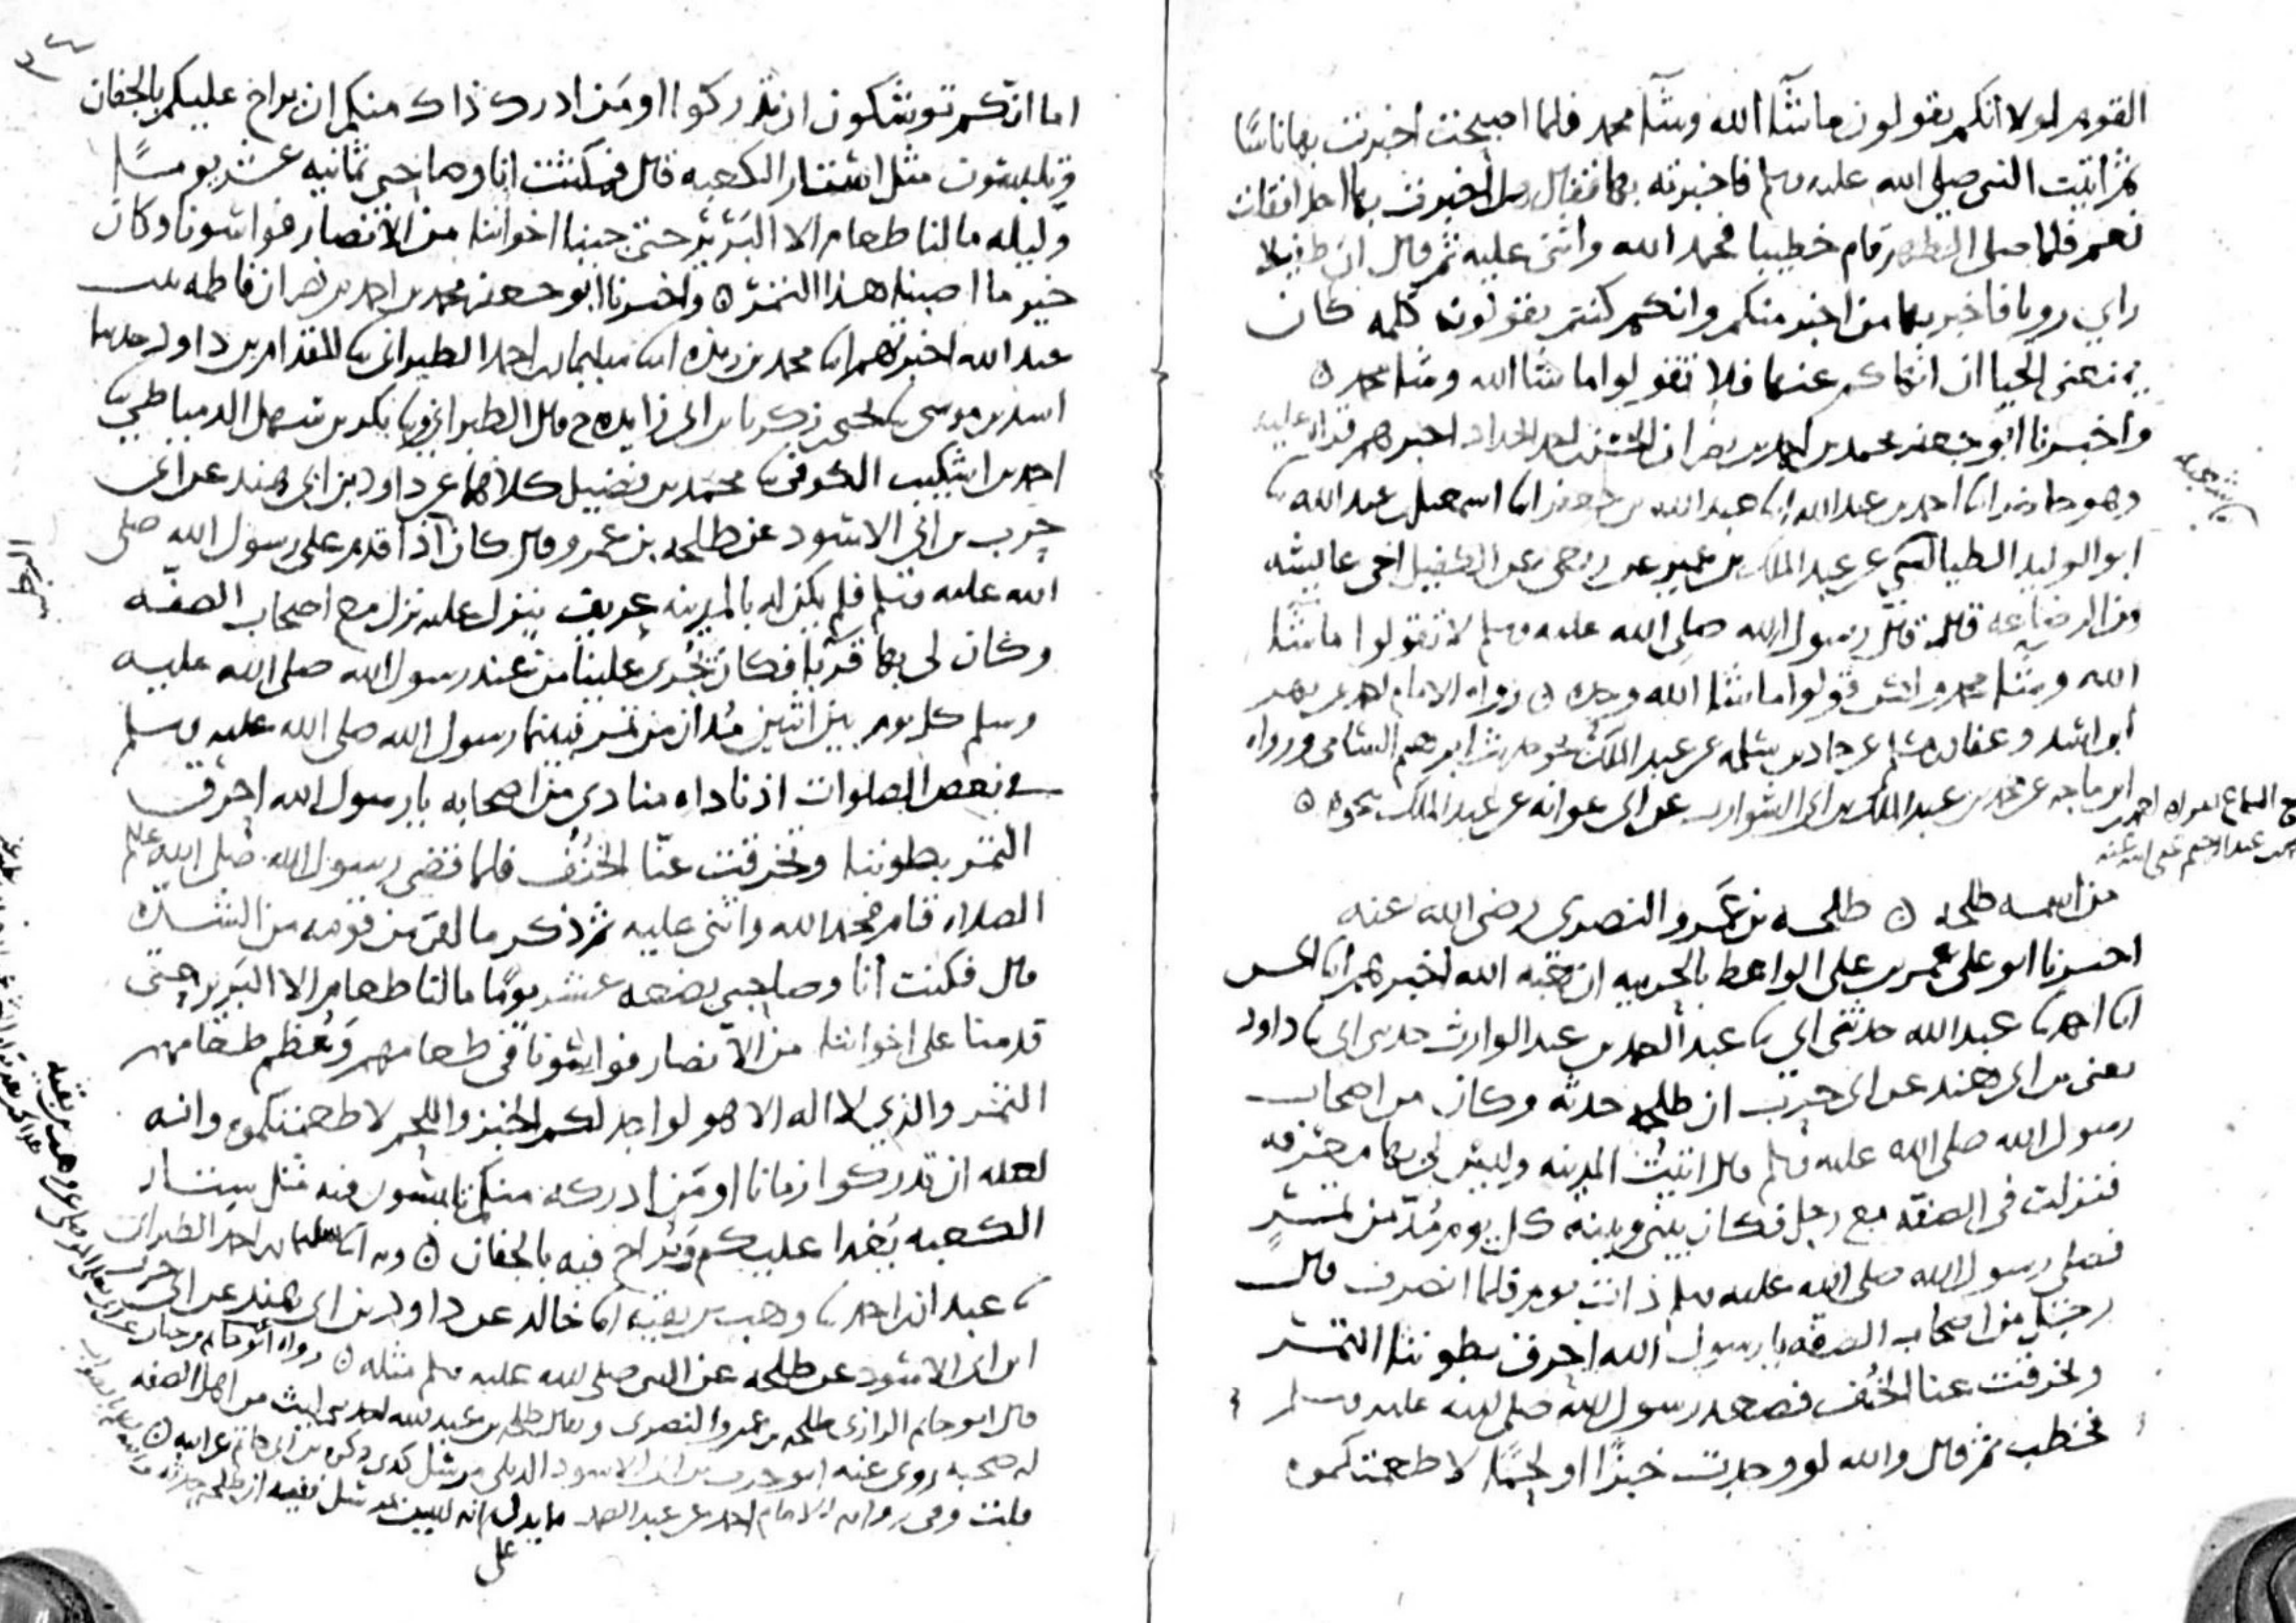 القوم لولا انكم تقولون ما شآ الله وشآ محمد فلما اصبحت اخبرت بها ناسًا
ثم اتيت النبي صلى الله عليه وسلم فاخبرته بها فقال هل اخبرت بها احدا فقلت
نعم فلما صلى الظهر قام خطيبا فحمد الله واثنى عليه ثم قال ان طفيلا
راي رويا فاخبر بها من اخبر منكم وانكم كنتم تقولون كلمه كان
يمنعني الحيا ان انهاكم عنها فلا تقولوا ما شا الله وشا محمد ٥
واخبرنا ابو جعفر محمد بن احمد بن نصر ان الحسن بن احمد الحداد اخبرهم قراه عليه
وهو حاضر انا احمد بن عبد الله انا عبد الله بن جعفر انا اسمعيل بن عبد الله نا
ابو الوليد الطيالسي عن عبد الملك بن عمير عن ربعي عن الطفيل اخي عايشه
من الرضاعه قال قال رسول الله صلى الله عليه وسلم لا تقولوا ما شا
الله وشا محمد ولكن قولوا ما شا الله وحده ٥ رواه الامام احمد عن بهز
وعفان عن حماد بن سلمه عن عبد الملك نحو حديث ابرهيم الشامي ورواه
ابن ماجه عن محمد بن عبد الملك بن ابي الشوارب عن ابي عوانه عن عبد الملك نحوه ٥
من اسمه طلحه ٥ طلحه بن عمرو النصري رضي الله عنه
اخبرنا ابو علي عمر بن علي الواعظ بالحربيه ان هبه الله اخبرهم انا الحسن
انا احمد نا عبد الله حدثني ابي نا عبد الصمد بن عبد الوارث حدثني ابي نا داود
يعني بن ابي هند عن ابي حرب ان طلحه حدثه وكان من اصحاب
رسول الله صلى الله عليه وسلم قال اتيت المدينه وليس لي بها معرفه
فنزلت في الصفه مع رجل فكان بيني وبينه كل يوم مُدّ من تمر
فصلى رسول الله صلى الله عليه وسلم ذات يوم فلما انصرف قال
رجل من اصحاب الصفه يا رسول الله احرق بطوننا التمر
وتخرقت عنا الخُنُف فصعد رسول الله صلى الله عليه وسلم
فخطب ثم قال والله لو وجدت خبزًا او لحمًا لاطعمتكموه
اما انكم توشكون ان تدركوا او من ادرك ذاك منكم ان يراح عليكم بالجفان
وتلبسون مثل استار الكعبه قال فمكثت انا وصاحبي ثمانيه عشر يومًا
وليله ما لنا طعام الا البرير حتى جينا اخواننا من الانصار فواسونا وكان
خير ما اصبنا هذا التمر ٥ واخبرنا ابو جعفر محمد بن احمد بن نصر ان فاطمه بنت
عبد الله اخبرتهم انا محمد بن ريذه انا سليمان بن احمد الطبراني نا المقدام بن داود
اسد بن موسى نا يحيى بن زكريا بن ابي زايده ح قال الطبراني ونا بكر بن سهل الدمياطي نا
احمد بن اشكيب الكوفي نا محمد بن فضيل كلاهما عن داود بن ابي هند عن ابي
حرب بن ابي الاسود عن طلحه بن عمرو قال كان اذا قدم على رسول الله صلى
الله عليه وسلم فلم يكن له بالمدينه عريف ينزل عليه نزل مع اصحاب الصفه
وكان لي بها قرنا فكان يُجرى علينا من عند رسول الله صلى الله عليه
وسلم كل يوم بين اثنين مُدان من تمر فبينا رسول الله صلى الله عليه وسلم
في بعض الصلوات اذ ناداه منادي من اصحابه يا رسول الله احرق
التمر بطوننا وتخرقت عنّا الخُنُف فلما قضى رسول الله صلى الله عليه وسلم
الصلاه قام فحمد الله واثنى عليه ثم ذكر ما لقي من قومه من الشده
قال فكنت انا وصاحبي بضعه عشر يومًا ما لنا طعام الا البرير حتى
قدمنا على اخواننا من الانصار فواسونا في طعامهم وعُظم طعامهم
التمر والذي لا اله الا هو لو اجد لكم الخبز واللحم لاطعمتكموه وانه
لعله ان تدركوا زمانا او من ادركه منكم تلبسون فيه مثل استار
الكعبه يُغدا عليكم ويُراح فيه بالجفان ٥ وبه انا سليمان بن احمد الطبراني
نا عبدان بن احمد نا وهب بن بقيه انا خالد عن داود بن ابي هند عن ابي حرب
ابن ابي الاسود عن طلحه عن النبي صلى الله عليه وسلم مثله ٥ رواه ابو حاتم بن حبان
قال ابو حاتم الرازي طلحه بن عمرو النصري ويقال طلحه بن عبد الله احد بني ليث من اهل الصفه
له صحبه روى عنه ابو حرب بن ابي الاسود الديلي ذكره بن ابي حاتم عن ابيه ٥
قلت وفي روايه الامام احمد عن عبد الصمد ما يدل
على